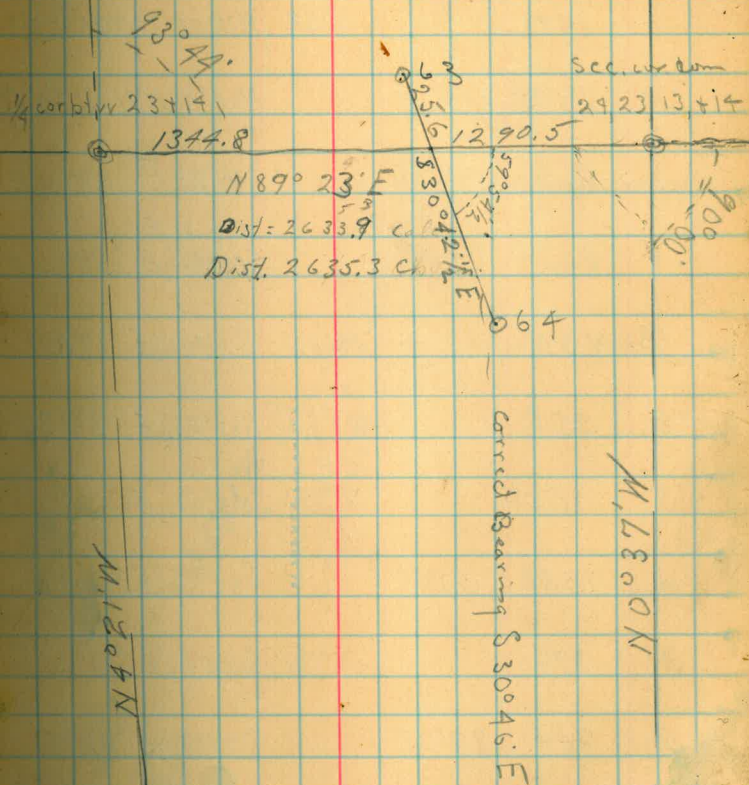 93° 44'
1/4 cor btw 23+14
Sec. cor com
24 23 13, +14
1344.8
325.6
1290.5
N 89° 23' E
Dist = 2633.9
Dist. 2635.3 Ch
S 30° 42 1/2' E
59° 54 1/2'
90° 00'
64
Correct Bearing S 30° 46' E
N 4° 21' W
N 0° 37' W